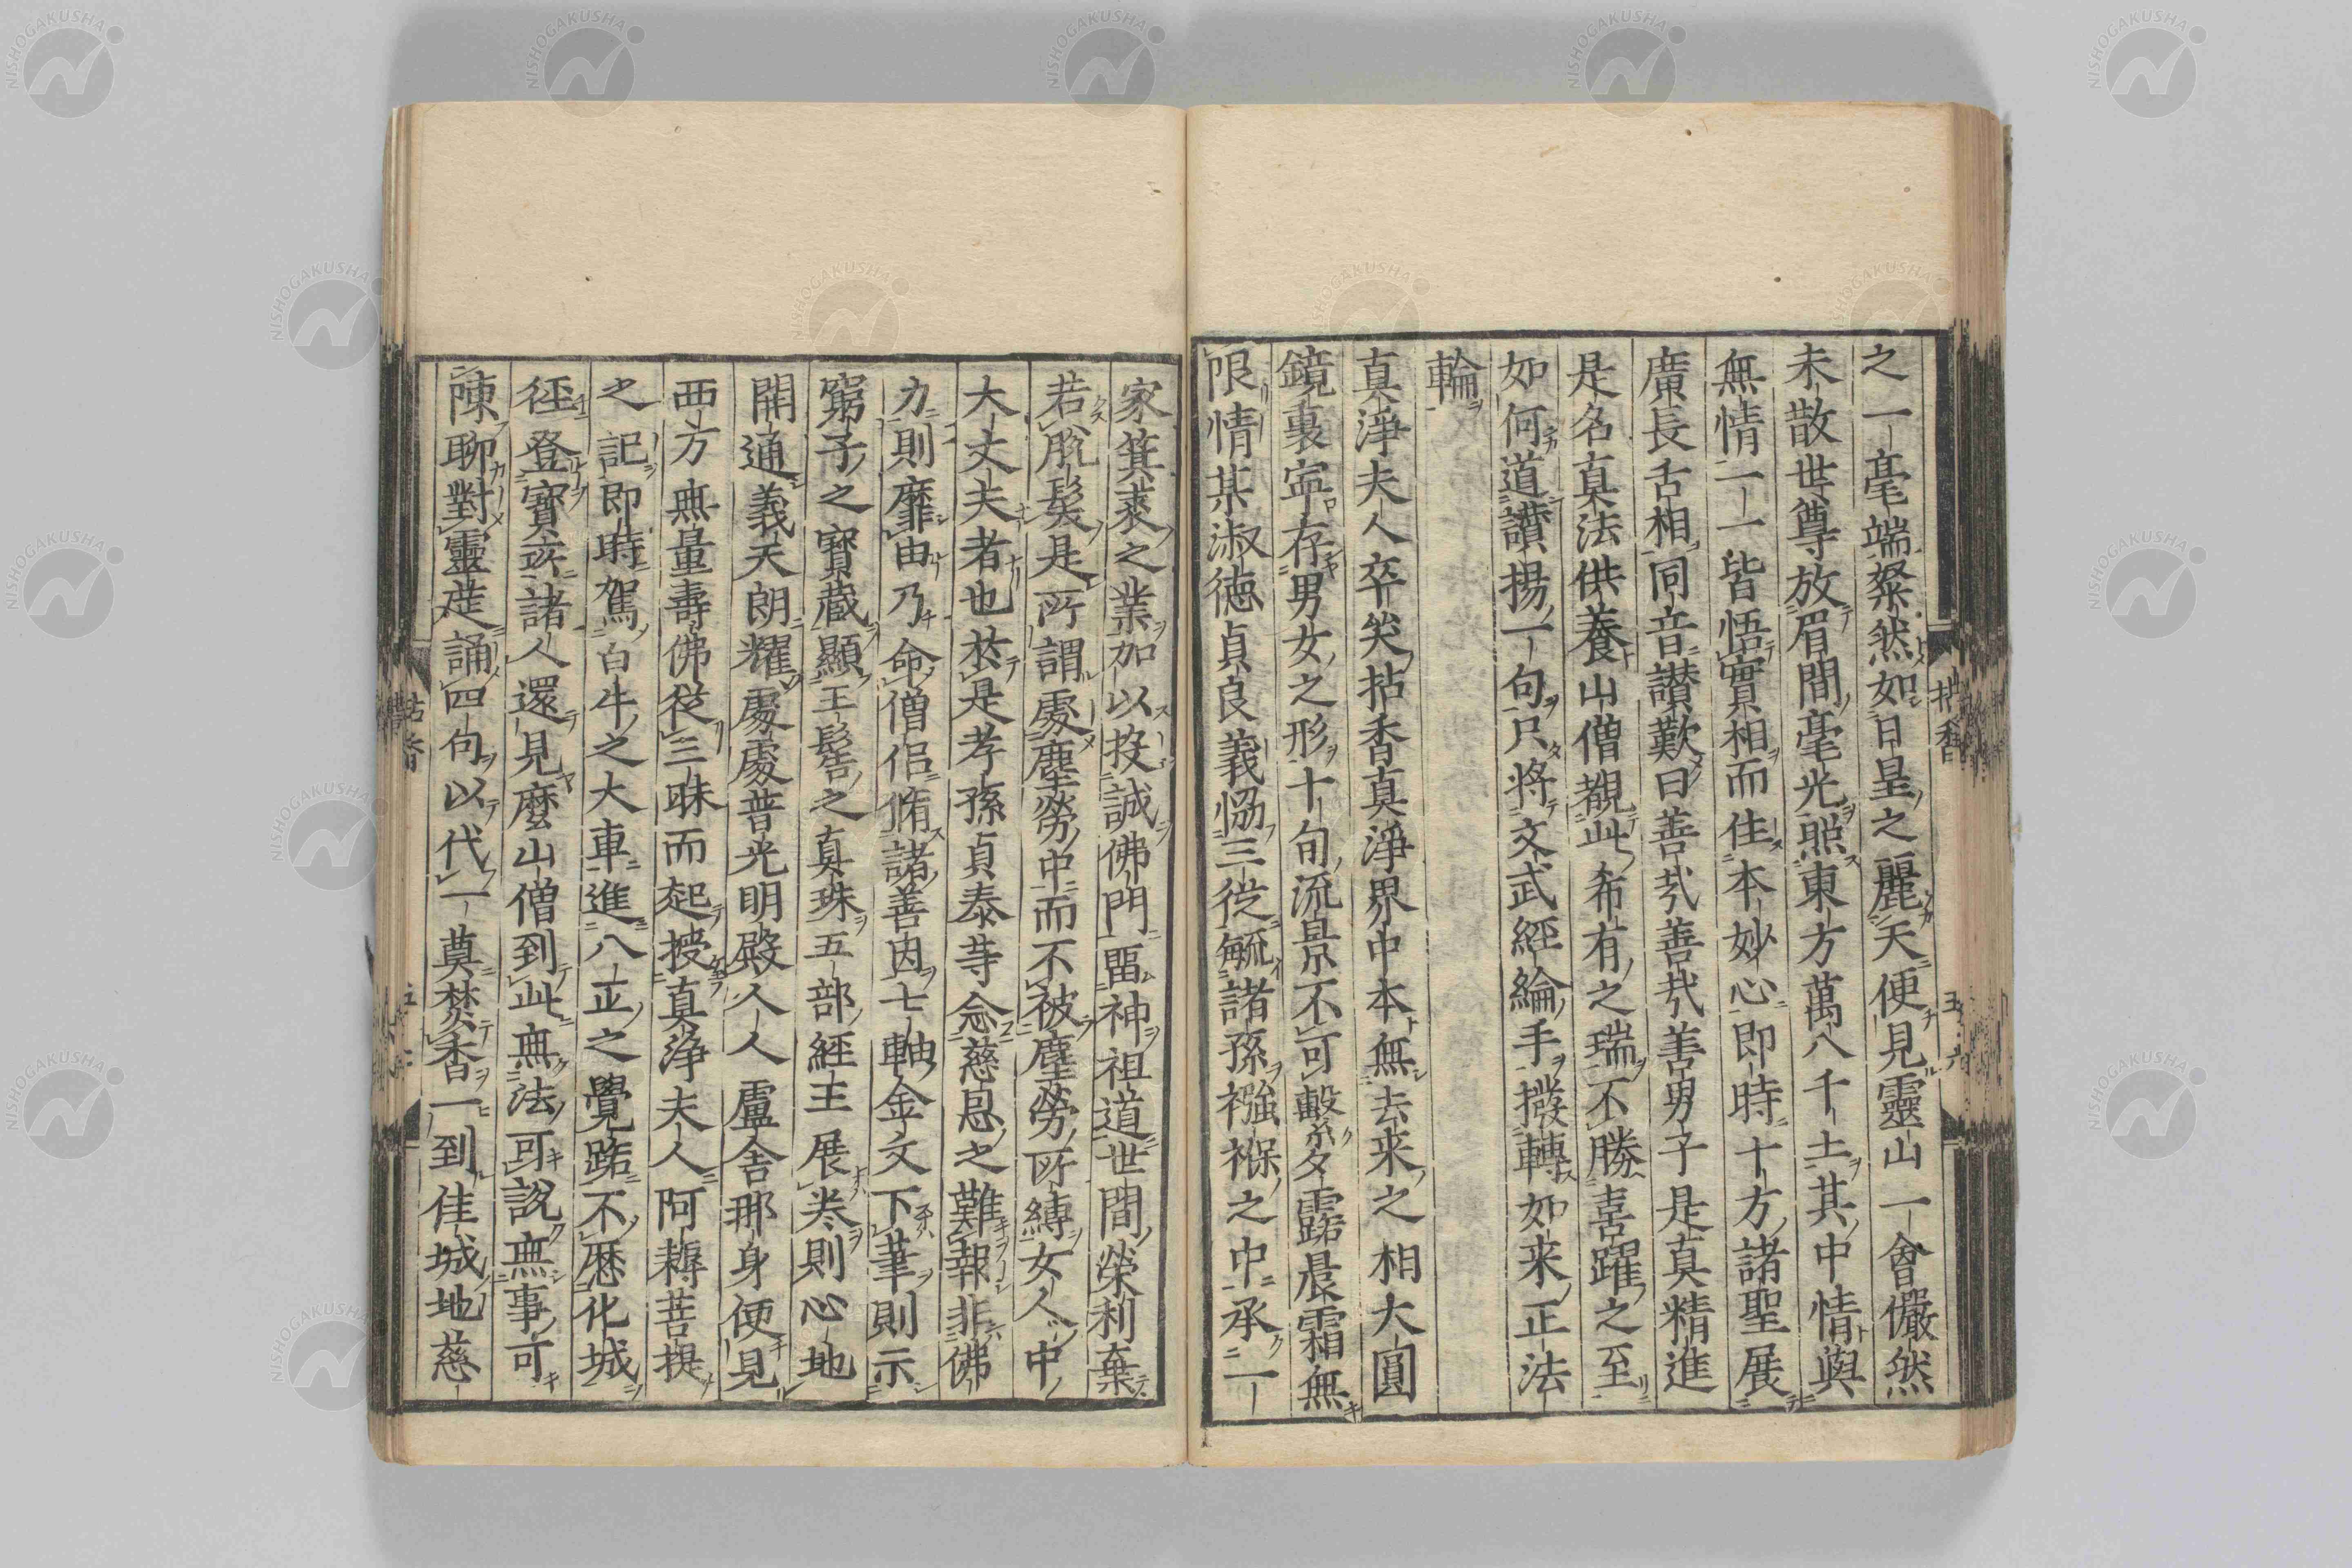 之一毫端粲然如日星之麗天便見靈山一會儼然
未散世尊放眉間毫光照東方萬八千土其中情與
無情一一皆悟實相而住本妙心即時十方諸聖展
廣長舌相同音讃歎曰善哉善哉善男子是真精進
是名真法供養山僧覩此希有之瑞不勝喜躍之至
如何道讃揚一句只將文武經綸手撥轉如来正法
輪
真淨夫人卒哭拈香真淨界中本無去来之相大圓
鏡裏寧存男女之形十旬流景不可繫夕露晨霜無
限情某淑徳貞良義恊三從毓諸孫襁褓之中承一
家箕裘之業加以投誠佛門畱神祖道世間榮利棄
若脱髮是所謂處塵勞中而不被塵勞所縛女人中
大丈夫者也於是孝孫貞泰等念慈恩之難報非佛
力則靡由乃命僧侶脩諸善因七軸金文下筆則示
窮子之寳藏顯王髻之真珠五部經王展巻則心地
開通義天朗耀處處普光明殿人人盧舎那身便見
西方無量壽佛從三昧而起授真浄夫人阿耨菩提
之記即時駕白牛之大車進八正之覺路不歴化城
徑登寶所諸人還見麼山僧到此無法可説無事可
陳聊對靈筵誦四句以代一奠焚香一到佳城地慈
拈香
五
六
拈香
NISHOGAKUSHA